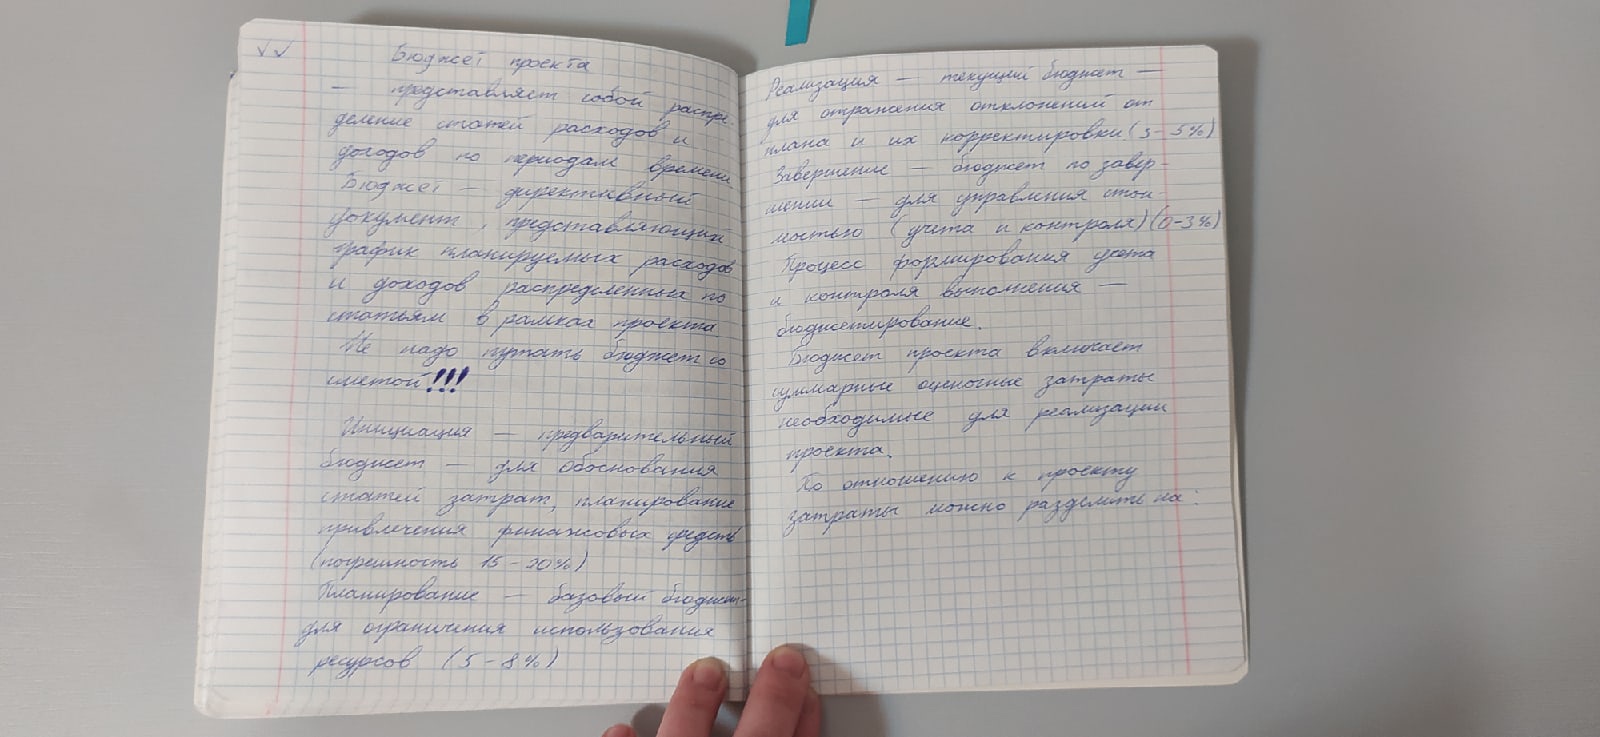 Бюджет проекта
— представляет собой распре-
деление статей расходов и
доходов по периодам времени
Бюджет — директивный
документ, представляющий
график планируемых расходов
и доходов распределенных по
статьям в рамках проекта
Не надо путать бюджет со
сметой!!!
Инициация — предварительный
бюджет — для обоснования
статей затрат, планирование
привлечения финансовых средств
(погрешность 15-20%)
Планирование — базовый бюджет-
для ограничения использования
ресурсов (5-8%)
Реализация — текущий бюджет —
для отражения отклонений от
плана и их корректировки (3-5%)
Завершение — бюджет по завер-
шении — для управления стои-
мостью (учета и контроля) (0-3%)
Процесс формирования учета
и контроля выполнения —
бюджетирование.
Бюджет проекта включает
суммарные оценочные затраты
необходимые для реализации
проекта.
По отношению к проекту
затраты можно разделить на: